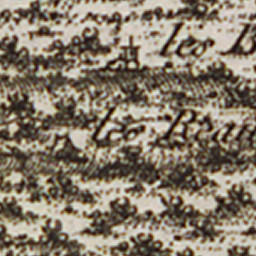 les B
les Beau